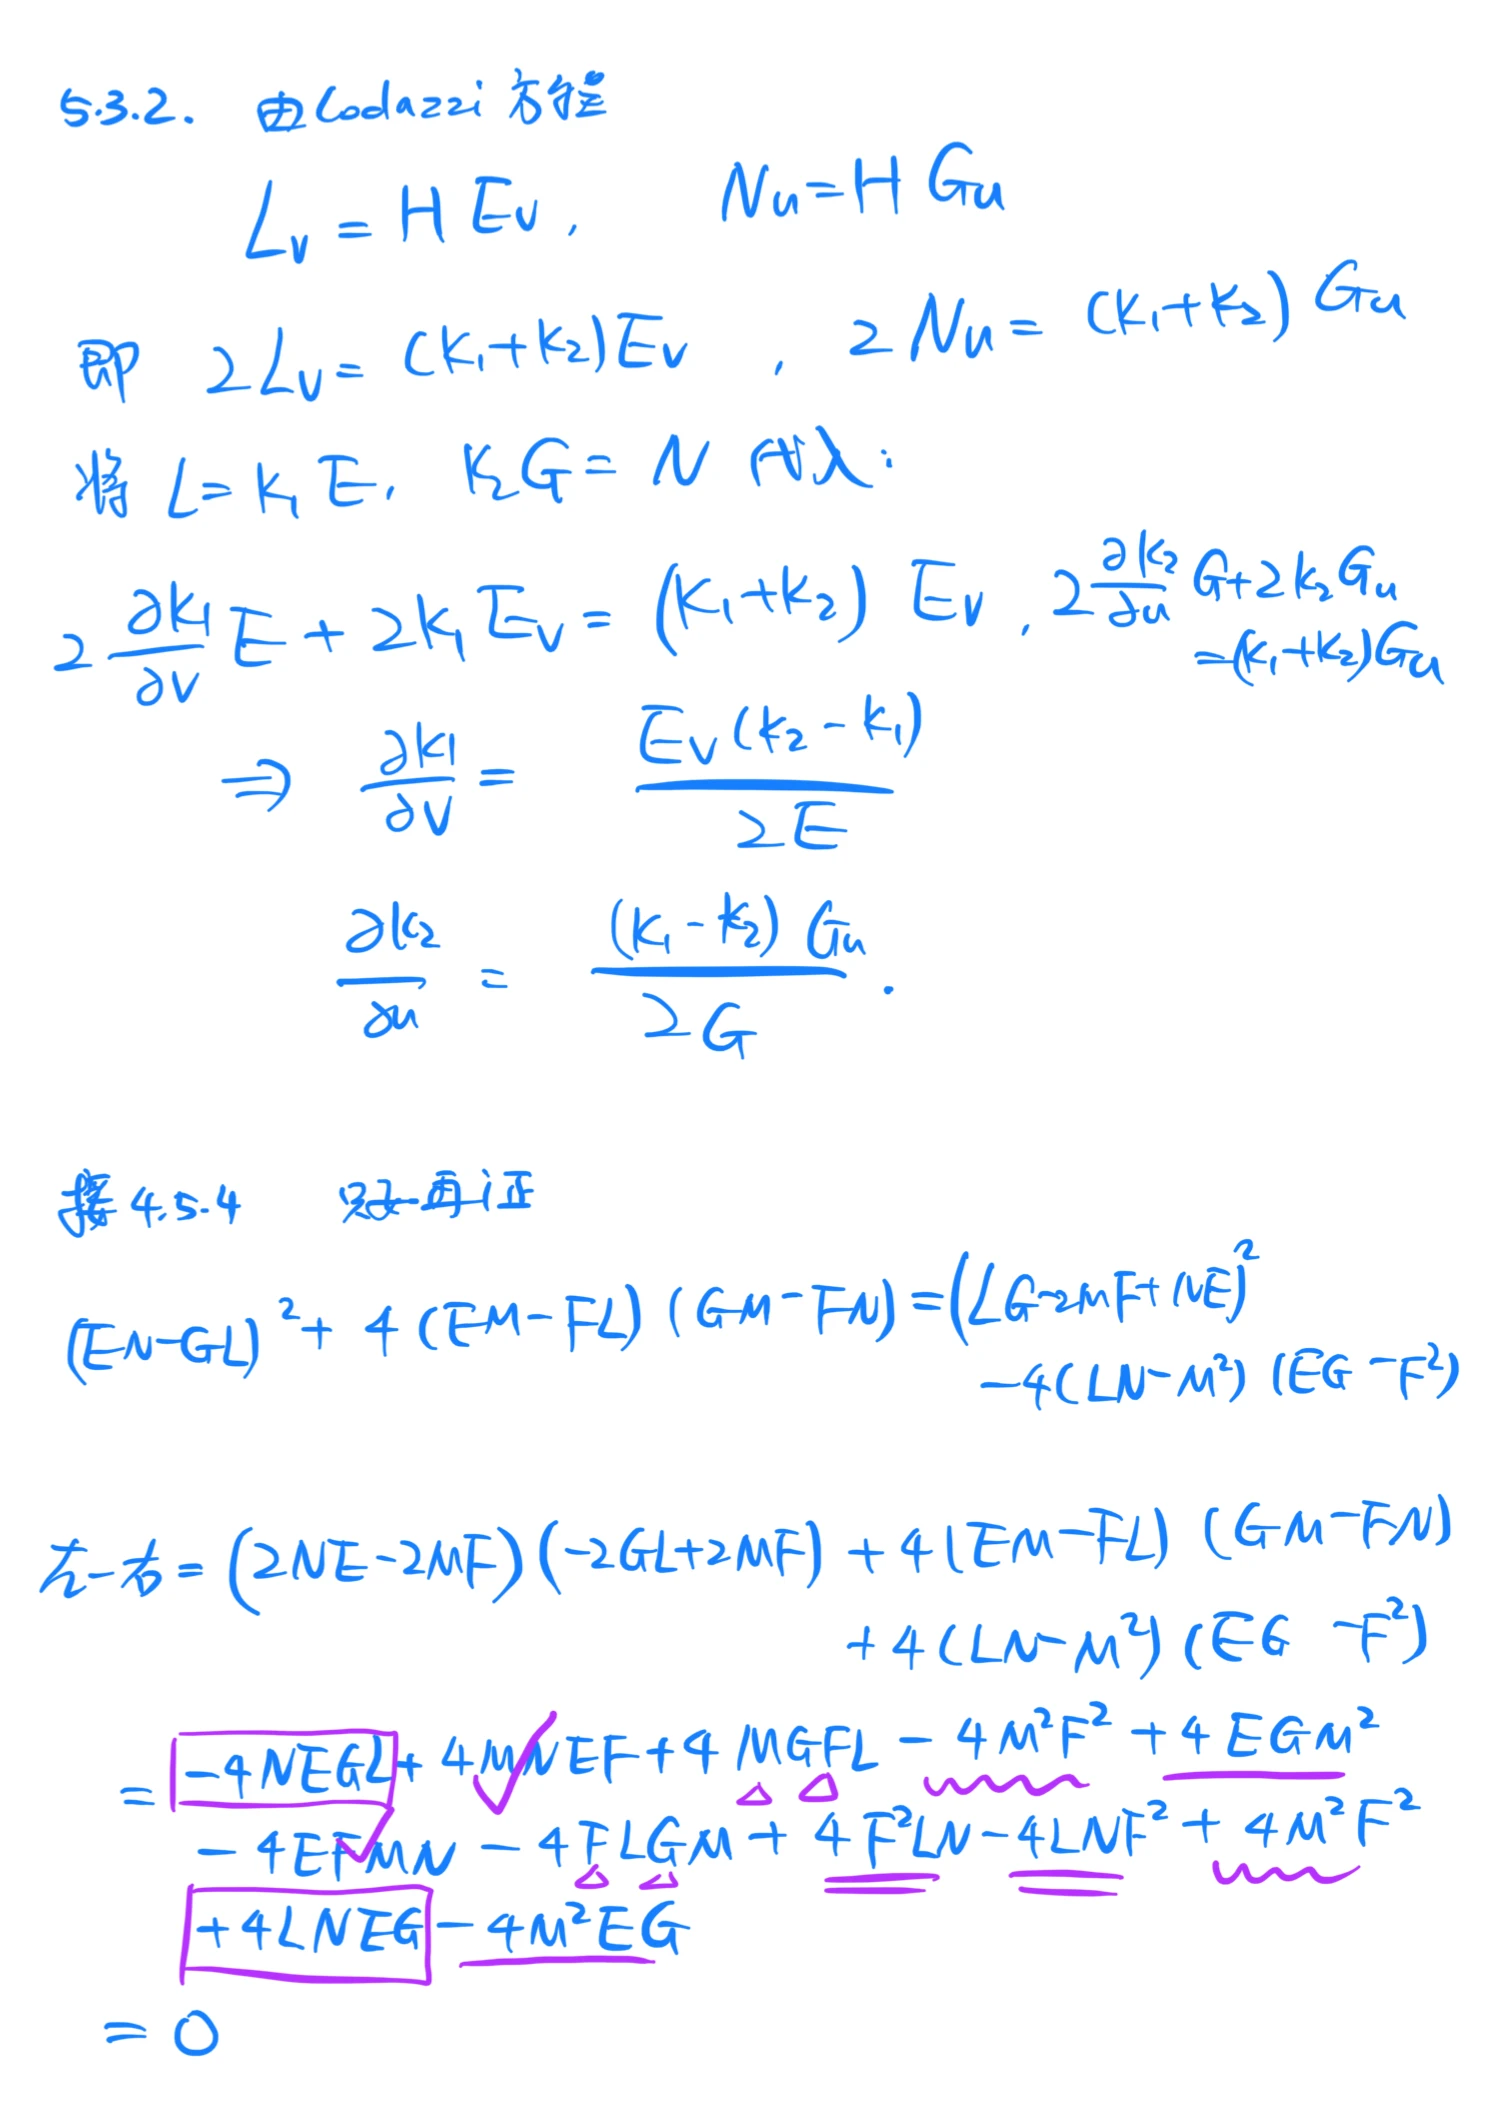 5.3.2. 由Codazzi方程
L_v = H E_v, N_u = H G_u
即 2L_v = (k_1+k_2)E_v, 2N_u = (k_1+k_2) G_u
将 L = k_1 E, k_2 G = N 代入:
2 ∂k_1/∂v E + 2k_1 E_v = (k_1+k_2) E_v, 2 ∂k_2/∂u G + 2k_2 G_u
= (k_1+k_2) G_u
⇒ ∂k_1/∂v = E_v(k_2-k_1)/2E
∂k_2/∂u = (k_1-k_2) G_u/2G.
接 4.5.4 只要再证
(EN-GL)^2 + 4(EM-FL)(GM-FN) = (LG-2MF+NE)^2
-4(LN-M^2)(EG-F^2)
左-右 = (2NE-2MF)(-2GL+2MF) + 4(EM-FL)(GM-FN)
+4(LN-M^2)(EG-F^2)
= -4NEGL + 4MNEF + 4MGFL - 4M^2F^2 + 4EGM^2
- 4EFMN - 4FLGM + 4F^2LN - 4LNF^2 + 4M^2F^2
+4LNEG - 4M^2EG
= 0